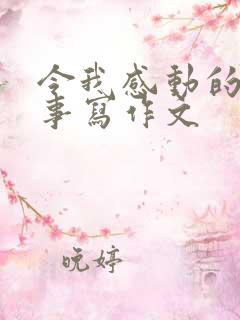 令我感動的
事寫作文
晚婷